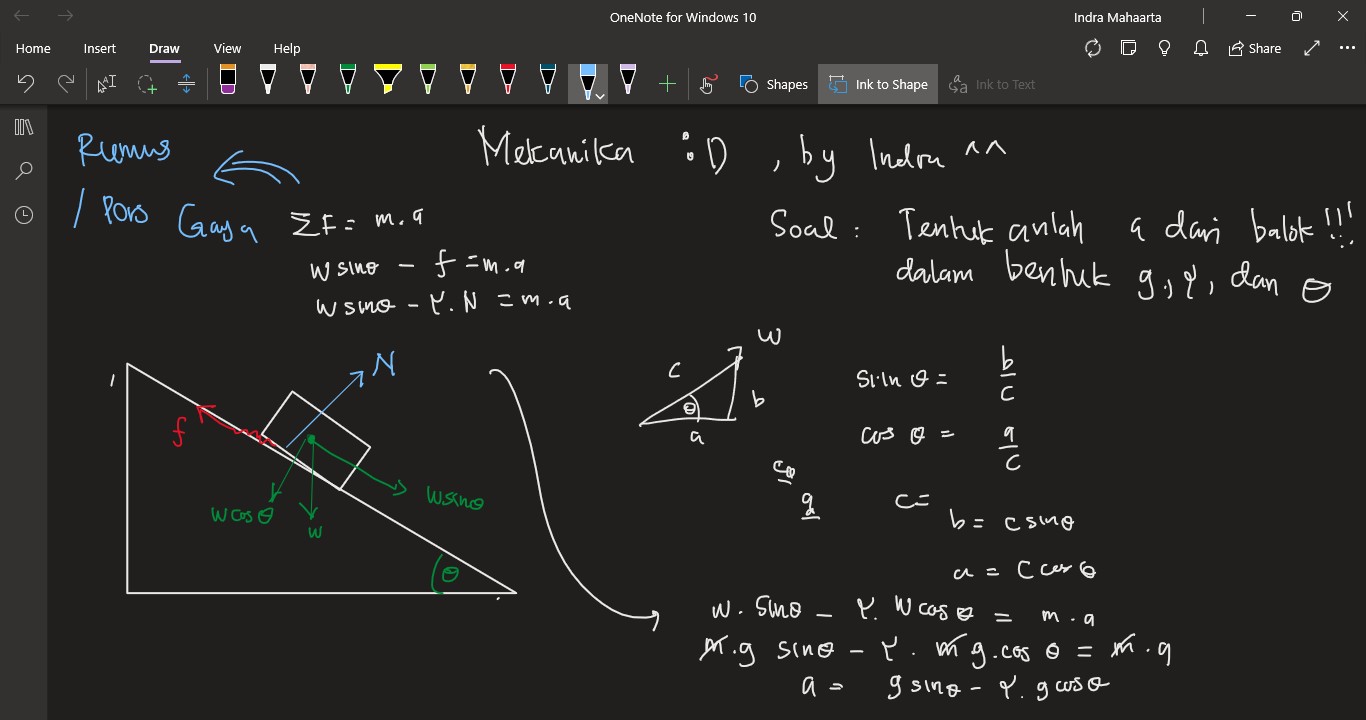 OneNote for Windows 10
Indra Mahaarta
Home Insert Draw View Help
Share
Shapes
Ink to Shape
Ink to Text
Rumus
/ Pers Gaya
Mekanika :D , by Indra ^^
Soal : Tentukanlah a dari balok!!!
dalam bentuk g, μ, dan θ
ΣF = m.a
w sinθ - f = m.a
w sinθ - μ.N = m.a
N
f
w cosθ
w
w sinθ
θ
w
c
θ
b
a
sin θ = b/c
cos θ = a/c
c =
b = c sinθ
a = c cos θ
a
w. sinθ - μ. w cos θ = m.a
m.g sinθ - μ. m g.cos θ = m.a
a = g sinθ - μ. g cosθ